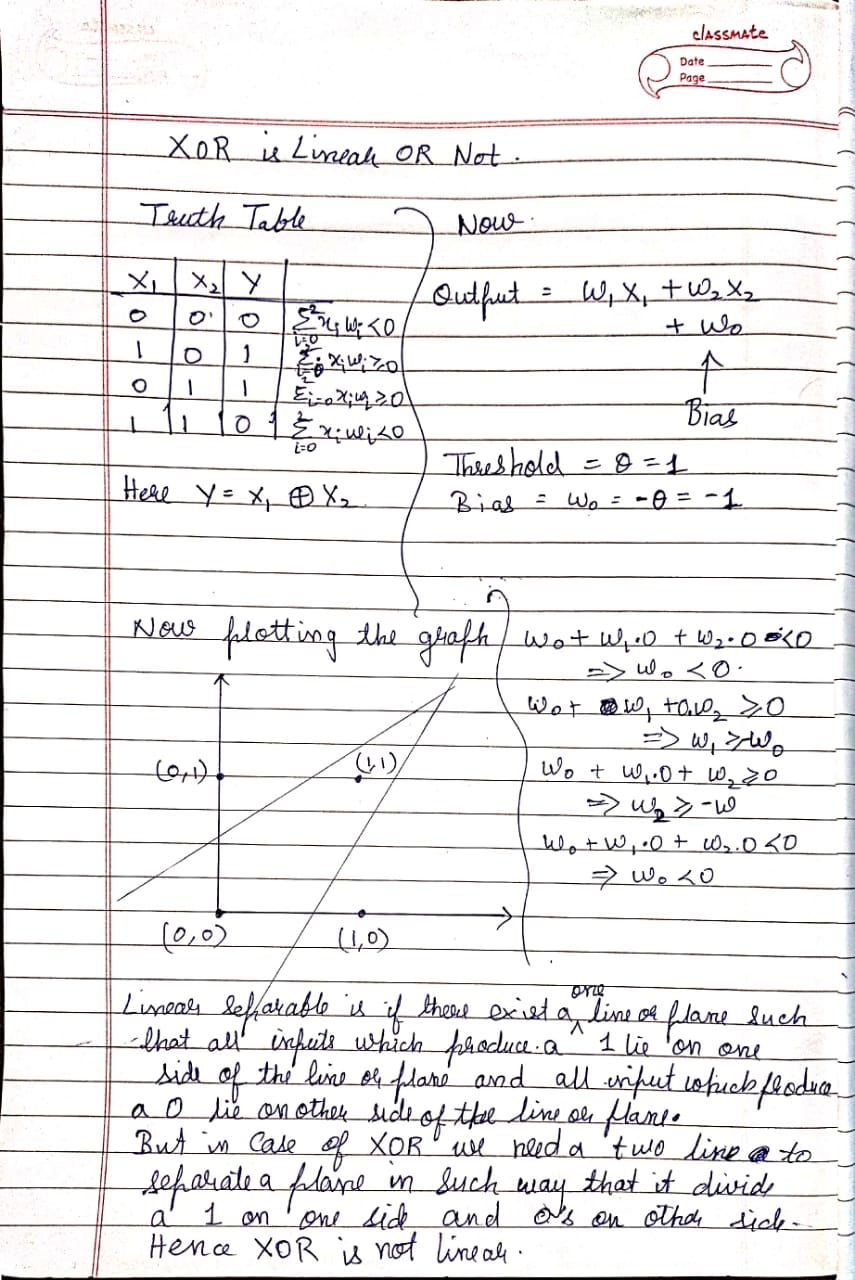 classmate
Date
Page
XOR is Linear OR Not.
Truth Table
X₁ X₂ Y
0 0 0 Σ²ᵢ₌₀ xᵢ wᵢ < 0
1 0 1 Σ²ᵢ₌₀ xᵢ wᵢ ≥ 0
0 1 1 Σᵢ₌₀ xᵢ wᵢ ≥ 0
1 1 0 Σ²ᵢ₌₀ xᵢ wᵢ < 0
Here Y = X₁ ⊕ X₂
Now
Output = W₁ X₁ + W₂ X₂
+ W₀
↑
Bias
Threshold = θ = 1
Bias = W₀ = -θ = -1
Now plotting the graph
(0,1) (1,1)
(0,0) (1,0)
W₀ + W₁.0 + W₂.0 < 0
=> W₀ < 0.
W₀ + W₁ + 0.W₂ ≥ 0
=> W₁ ≥ -W₀
W₀ + W₁.0 + W₂ ≥ 0
=> W₂ ≥ -W
W₀ + W₁.0 + W₂.0 < 0
=> W₀ < 0
Linear Separable is if there exist a one line or plane such
that all inputs which produce a 1 lie on one
side of the line or plane and all input which produce
a 0 lie on other side of the line or plane.
But in Case of XOR we need a two line to
separate a plane in such way that it divide
a 1 on one side and 0's on other side.
Hence XOR is not linear.